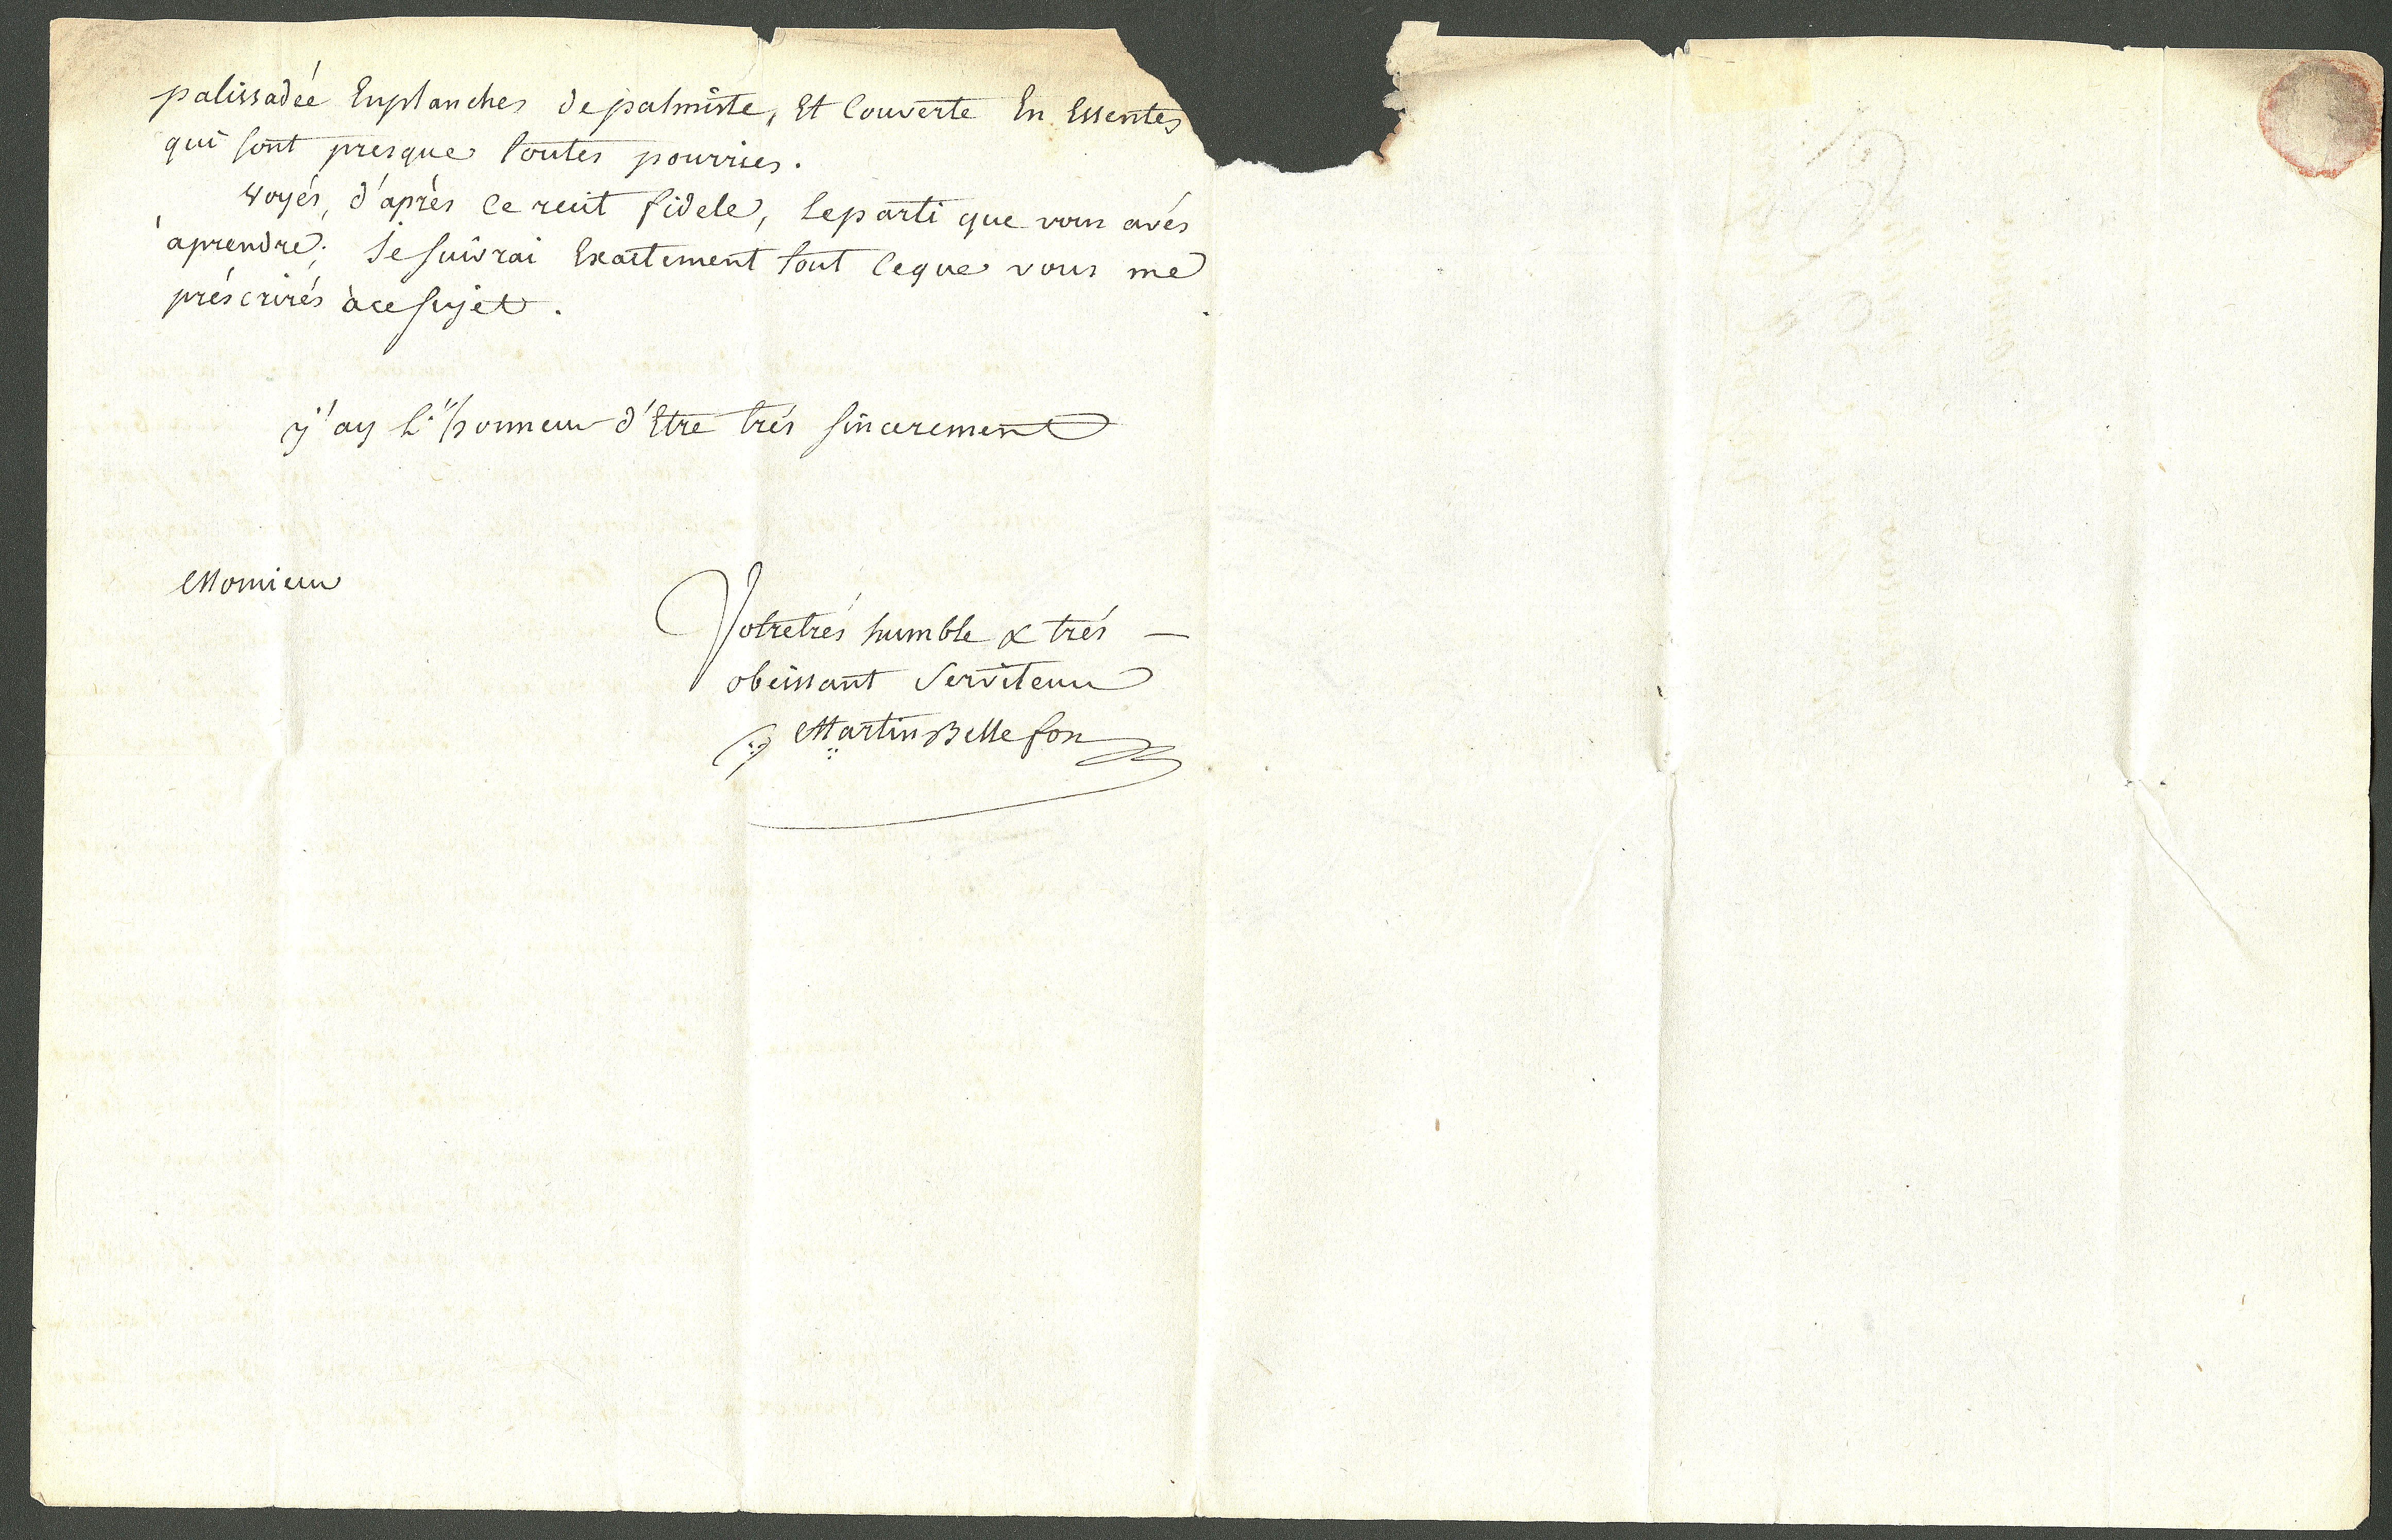 palissadéé Enplanches de palmiste, Et Couverte En Essentes
qui sont presque toutes pourries.
voyés, d'après ce recit fidele, le parti que vous avés
aprendre; Je suivrai Exactement tout ceque vous me
préscrirés àce sujet.
j'ay l'honneur d'Etre trés sincerement
Monsieur
Votretrés humble & trés —
obeissant Serviteur
Martin Bellefon